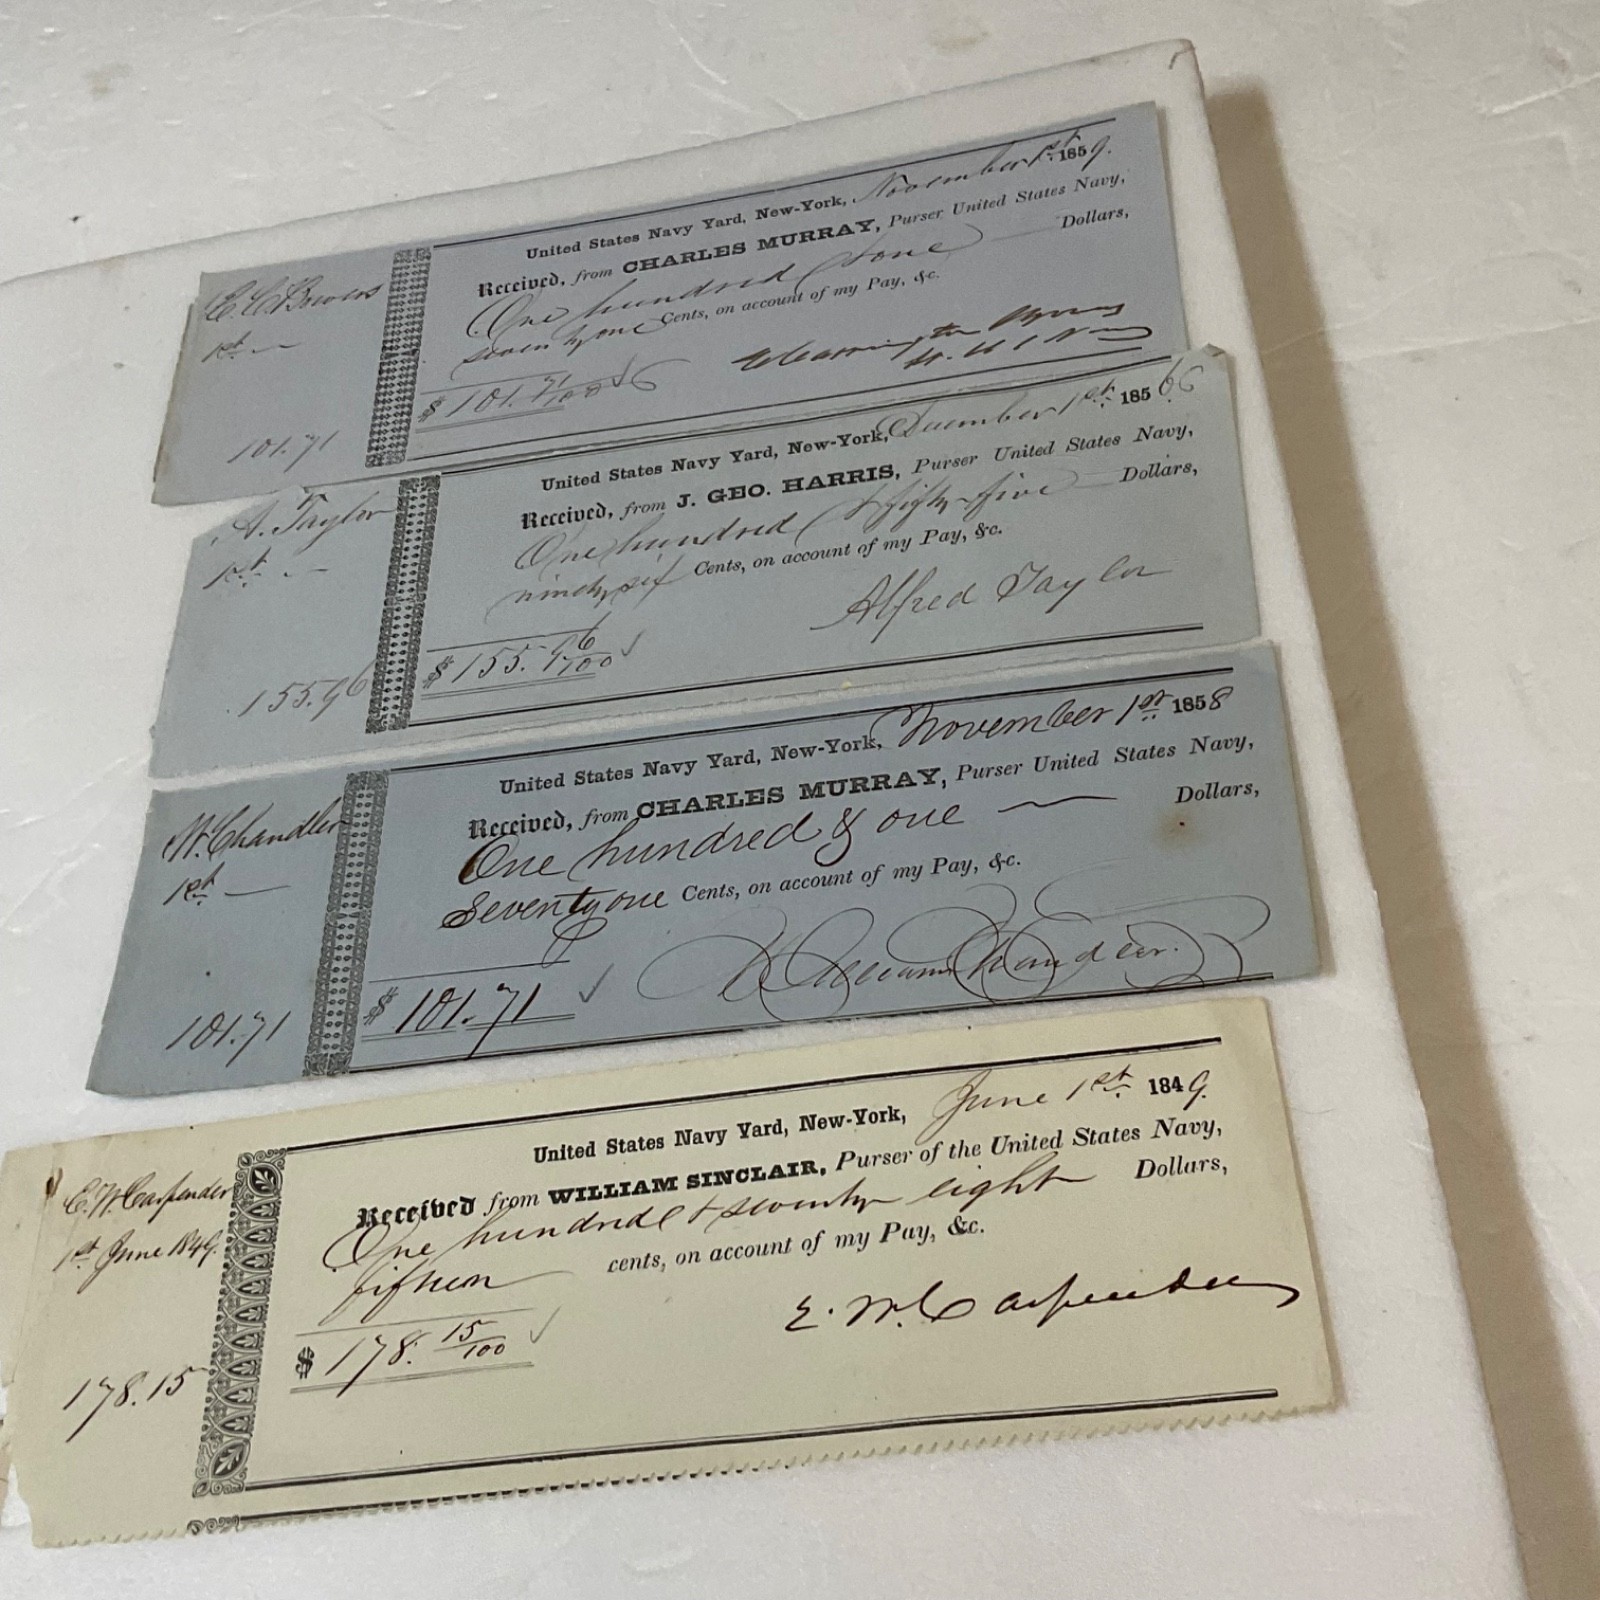 United States Navy Yard, New-York, November 1st. 1859.
Received, from CHARLES MURRAY, Purser United States Navy,
One hundred & one Dollars,
seventy one Cents, on account of my Pay, &c.
$ 101. 71/100
1st.
101.71
United States Navy Yard, New-York, December 1st. 185
Received, from J. GEO. HARRIS, Purser United States Navy,
One hundred & fifty-five Dollars,
ninety six Cents, on account of my Pay, &c.
Alfred Taylor
$ 155. 96/100
A. Taylor
1st.
155.96
United States Navy Yard, New-York, November 1st. 1858
Received, from CHARLES MURRAY, Purser United States Navy,
One hundred & one Dollars,
Seventy one Cents, on account of my Pay, &c.
William Chandler.
$ 101.71
W. Chandler
1st.
101.71
United States Navy Yard, New-York, June 1st. 1849.
Received from WILLIAM SINCLAIR, Purser of the United States Navy,
One hundred & seventy eight Dollars,
fifteen cents, on account of my Pay, &c.
E. W. Carpender
$ 178. 15/100
E. W. Carpender
1st June 1849.
178.15